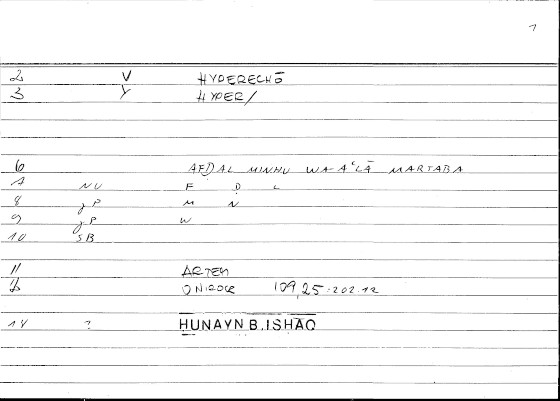 2 V HYPERECHŌ
3 Y HYPER/
6 AFḌAL MINHU WA-AʿLĀ MARTABA
7 NU F Ḍ L
8 gP M N
9 gP W
10 SB
11 ARTEM
12 ONIROCR 109,25-202.12
14 ? HUNAYN B. ISHAQ